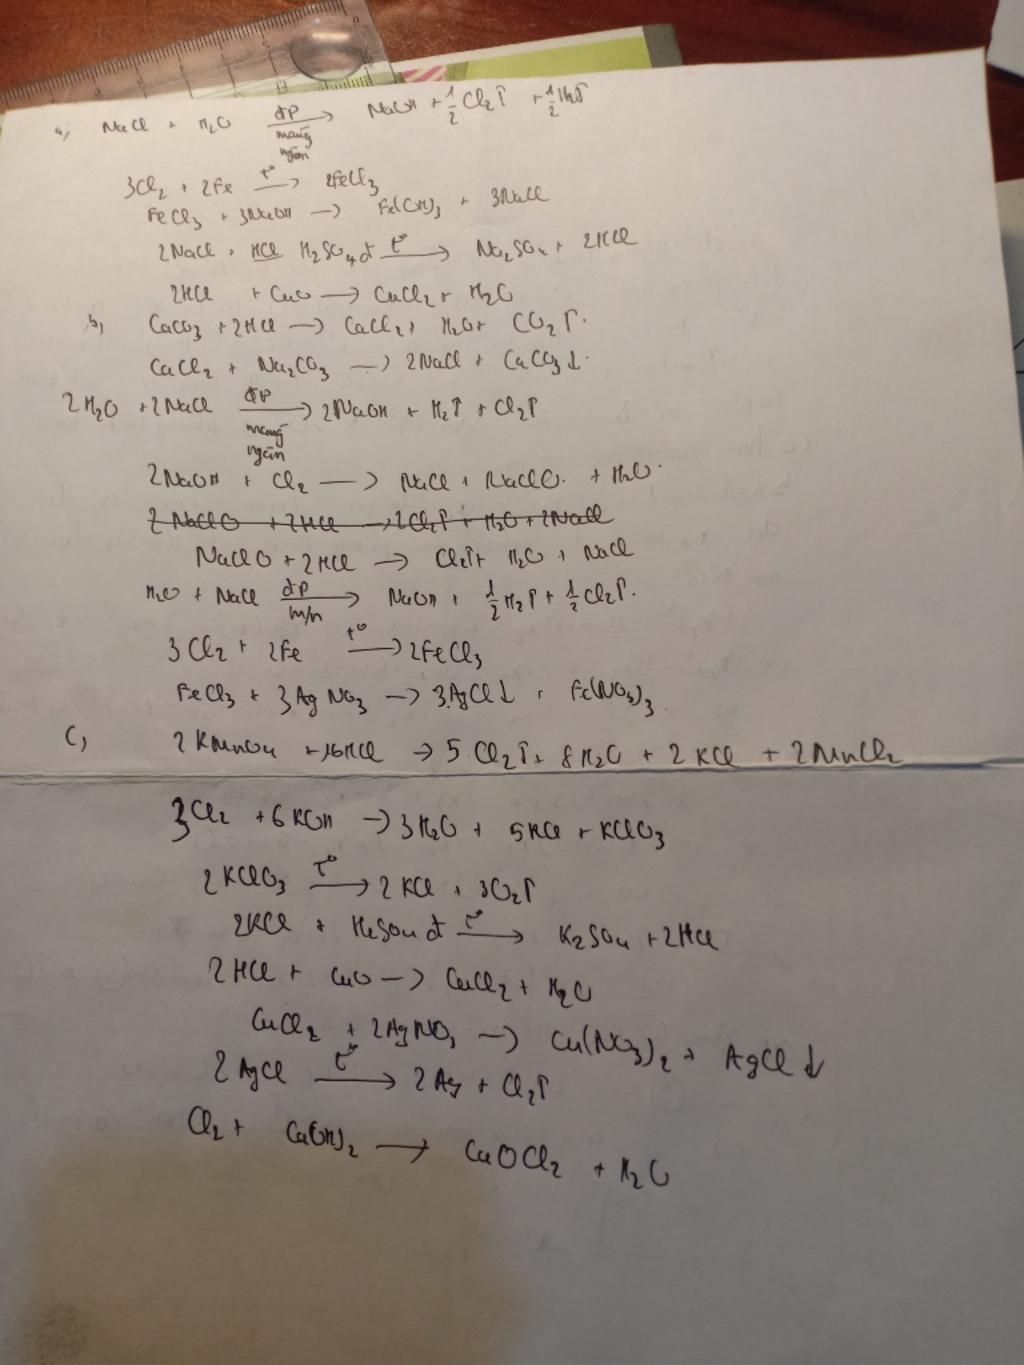 a, NaCl + H2O đp màng ngăn → NaOH + 1/2 Cl2↑ + 1/2 H2↑
3Cl2 + 2Fe t° → 2FeCl3
FeCl3 + 3NaOH → Fe(OH)3 + 3NaCl
2NaCl + H2SO4 đ t° → Na2SO4 + 2HCl
2HCl + CuO → CuCl2 + H2O
b, CaCO3 + 2HCl → CaCl2 + H2O + CO2↑.
CaCl2 + Na2CO3 → 2NaCl + CaCO3↓.
2H2O + 2NaCl đp màng ngăn → 2NaOH + H2↑ + Cl2↑
2NaOH + Cl2 → NaCl + NaClO. + H2O.
2NaClO + 2HCl → 2Cl2↑ + H2O + 2NaCl
NaClO + 2HCl → Cl2↑ + H2O + NaCl
H2O + NaCl đp m/n → NaOH + 1/2 H2↑ + 1/2 Cl2↑.
3Cl2 + 2Fe t° → 2FeCl3
FeCl3 + 3AgNO3 → 3AgCl↓ + Fe(NO3)3.
C, 2KMnO4 + 16HCl → 5Cl2↑ + 8H2O + 2KCl + 2MnCl2
3Cl2 + 6KOH → 3H2O + 5KCl + KClO3
2KClO3 t° → 2KCl + 3O2↑
2KCl + H2SO4 đ t° → K2SO4 + 2HCl
2HCl + CuO → CuCl2 + H2O
CuCl2 + 2AgNO3 → Cu(NO3)2 + AgCl↓
2AgCl t° → 2Ag + Cl2↑
Cl2 + Ca(OH)2 → CaOCl2 + H2O